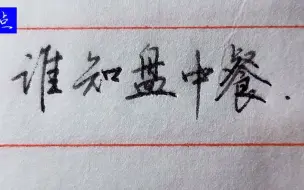 点
谁知盘中餐.